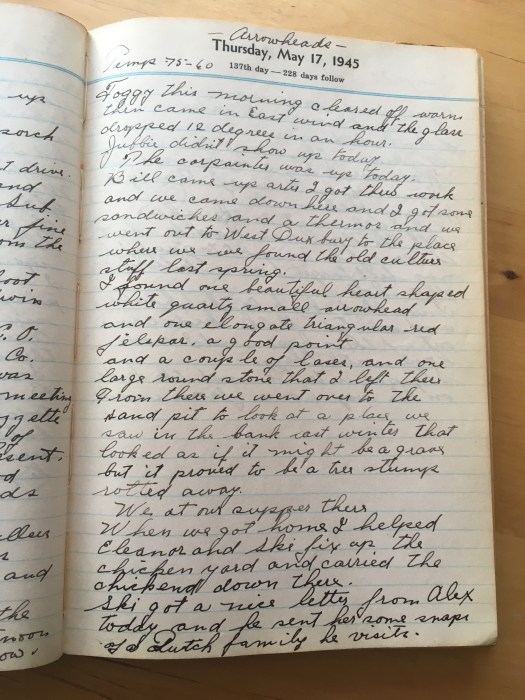 up
sorch
t drive.
and
Sub.
er fine
om the
loot
rwin
C. O.
Co.
was
meeting
ggette
of
sent.
d
ds
and
the
noon
ow.
- Arrowheads -
Thursday, May 17, 1945
Temps 75-60
137th day — 228 days follow
Foggy this morning cleared off warm
then came in East wind and the glass
dropped 12 degrees in an hour.
Jubbie didn't show up today
The carpainter was up today.
Bill came up after I got thru work
and we came down here and I got some
sandwiches and a thermos and we
went out to West Duxbury to the place
where we we found the old culture
stuff last spring.
I found one beautiful heart shaped
white quartz small arrowhead
and one elongate triangular red
felspar. a good point
and a couple of bases, and one
large round stone that I left there
From there we went over to the
sand pit to look at a place we
saw in the bank last winter that
looked as if it might be a grave
but it proved to be a tree stump
rotted away.
We at our supper there
When we got home I helped
Eleanor and Ski fix up the
chicken yard and carried the
chickens down there.
Ski got a nice letter from Alex
today and he sent her some snaps
of a Dutch family he visits.